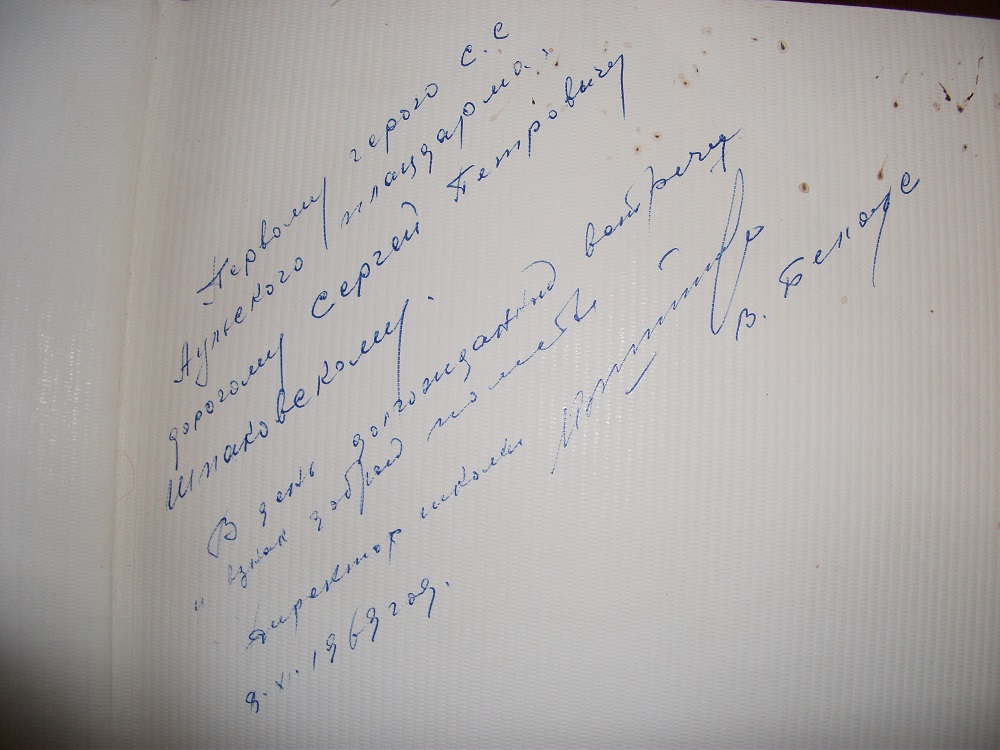 Первому герою С.С
Аульского плацдарма.
дорогому Сергей Петровичу
Шпаковскому.
В день долгожданной встречу
и взнак доброй
Директор школы
В. Бекаре
8. XI. 1969 год.